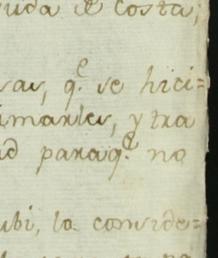 vida de Costa,
sas, q.^e se hici=
imarles, y tra
ad paraq.^e no
ubi, la conside=